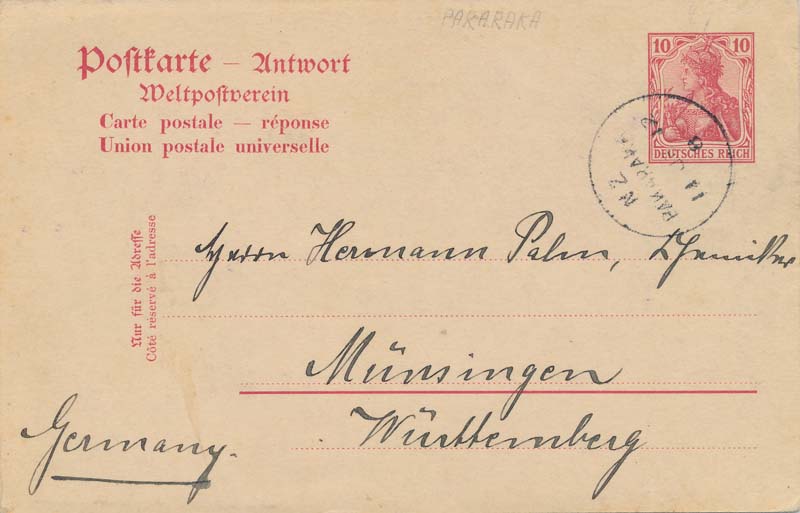 PAKARAKA
Postkarte – Antwort
Weltpostverein
Carte postale — réponse
Union postale universelle
10 10
DEUTSCHES REICH
N Z
PAKARAKA
Nur für die Adresse
Côté réservé à l'adresse
Herrn Hermann Palm, Chemiker
Münsingen
Württemberg
Germany.